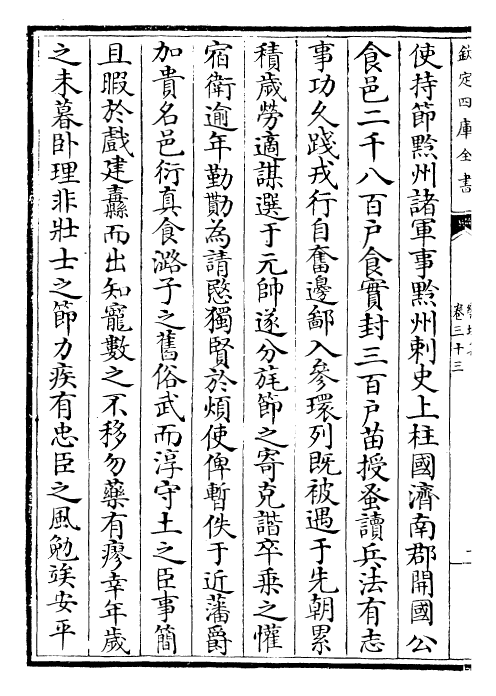 欽定四庫全書
卷三十三
使持節黔州諸軍事黔州刺史上柱國濟南郡開國公
食邑二千八百户食實封三百户苗授蚤讀兵法有志
事功久踐戎行自奮邊鄙入參環列既被遇于先朝累
積歲勞適謀選于元帥遂分旄節之寄克諧卒乗之懽
宿衛逾年勤勩為請愍獨賢於煩使俾暫佚于近藩爵
加貴名邑衍真食潞子之舊俗武而淳守土之臣事簡
且暇於戲建纛而出知寵數之不移勿藥有瘳幸年歲
之未暮卧理非壯士之節力疾有忠臣之風勉竢安平